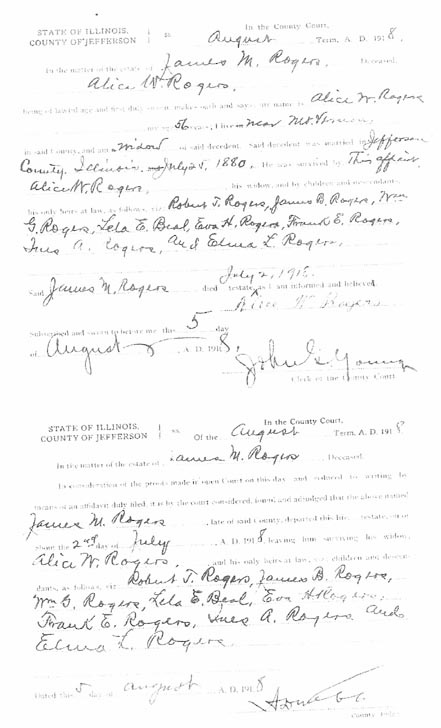 STATE OF ILLINOIS, COUNTY OF JEFFERSON ss. In the County Court,
August Term, A. D. 1918.
In the matter of the estate of James M. Rogers, Deceased.
Alice W. Rogers,
being of lawful age and first duly sworn, makes oath and says: my name is Alice W. Rogers
my age 56 years, I live near Mt. Vernon
in said County, and am widow of said decedent. Said decedent was married in Jefferson
County, Illinois, July 25, 1880. He was survived by This affiant,
Alice W. Rogers, his widow, and by children and descendants,
his only heirs at law, as follows, viz: Robert T. Rogers, James B. Rogers, Wm
G. Rogers, Lela E. Beal, Eva H. Rogers, Frank E. Rogers,
Ines A. Rogers, and Elma L. Rogers,
July 2, 1918.
Said James M. Rogers died testate as I am informed and believed.
Alice W Rogers
Subscribed and sworn to before me this 5 day
of August A. D. 1918.
John G. Young
Clerk of the County Court
STATE OF ILLINOIS, COUNTY OF JEFFERSON ss. In the County Court,
Of the August Term, A. D. 1918
In the matter of the estate of James M. Rogers, Deceased.
In consideration of the proofs made in open Court on this day and reduced to writing by
means of an affidavit duly filed, it is by the court considered, found, and adjudged that the above named
James M. Rogers, late of said County, departed this life, testate, on or
about the 2nd day of July A. D. 1918 leaving him surviving his widow,
Alice W. Rogers, and his only heirs at law, viz: children and descen-
dants, as follows, viz: Robert T. Rogers, James B. Rogers,
Wm G. Rogers, Lela E. Beal, Eva H Rogers,
Frank E. Rogers, Ines A. Rogers and
Elma L. Rogers.
Dated this 5 day of August A. D. 1918
County Judge